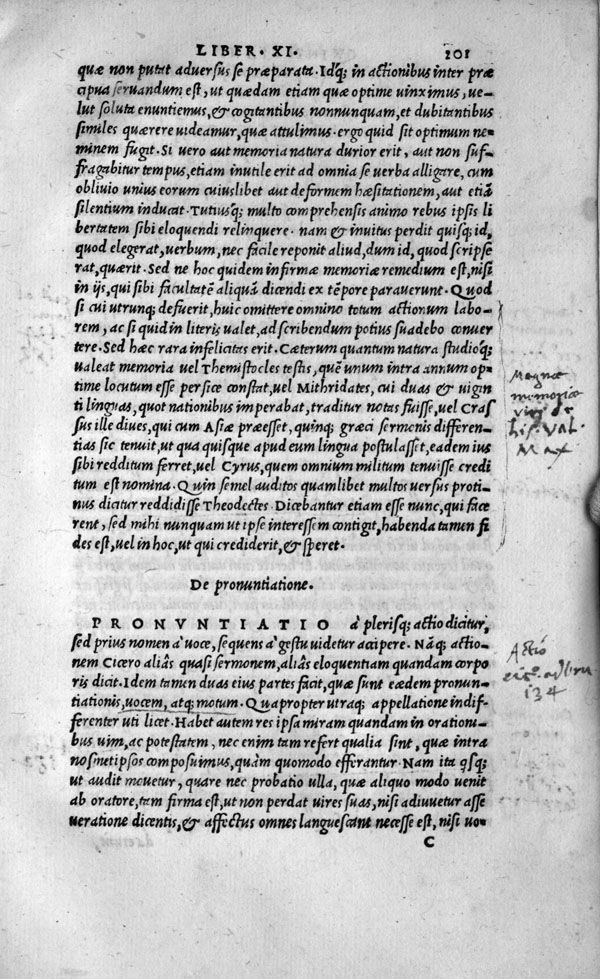 LIBER · XI · 201
quæ non putat adversus se præparata. Idq; in actionibus inter præ
cipua servandum est, ut quædam etiam quæ optime vinximus, ve-
lut soluta enuntiemus, & cogitantibus nonnunquam, et dubitantibus
similes quærere videamur, quæ attulimus. ergo quid sit optimum ne-
minem fugit. Si vero aut memoria natura durior erit, aut non suf-
fragabitur tempus, etiam inutile erit ad omnia se verba alligare, cum
oblivio unius eorum cuiuslibet aut deformem hæsitationem, aut etiā
silentium inducat. Tutiusq; multo comprehensis animo rebus ipsis li
bertatem sibi eloquendi relinquere. nam & invitus perdit quisq; id,
quod elegerat, verbum, nec facile reponit aliud, dum id, quod scripse
rat, quærit. Sed ne hoc quidem infirmæ memoriæ remedium est, nisi
in ijs, qui sibi facultatē aliquā dicendi ex tēpore paraverunt. Quod
si cui utrunq; defuerit, huic omittere omnino totum actionum labo-
rem, ac si quid in literis valet, ad scribendum potius suadebo conver
tere. Sed hæc rara infelicitas erit. Cæterum quantum natura studioq;
valeat memoria vel Themistocles testis, quē unum intra annum op-
time locutum esse persice constat, vel Mithridates, cui duas & vigin
ti linguas, quot nationibus imperabat, traditur notas fuisse, vel Cras
sus ille dives, qui cum Asiæ præesset, quinq; græci sermonis differen-
tias sic tenuit, ut qua quisque apud eum lingua postulasset, eadem ius
sibi redditum ferret, vel Cyrus, quem omnium militum tenuisse credi
tum est nomina. Quin semel auditos quamlibet multos versus proti-
nus dicitur reddidisse Theodectes. Dicebantur etiam esse nunc, qui face
rent, sed mihi nunquam ut ipse interessem contigit, habenda tamen fi
des est, vel in hoc, ut qui crediderit, & speret.
Magnæ
memoriæ
viri de
his. VAL.
MAX
De pronuntiatione.
PRONVNTIATIO à plerisq; actio dicitur,
sed prius nomen à voce, sequens à gestu videtur accipere. Nāq; actio-
nem Cicero aliâs quasi sermonem, aliâs eloquentiam quandam corpo
ris dicit. Idem tamen duas eius partes facit, quæ sunt eædem pronun-
tiationis, vocem, atq; motum. Quapropter utraq; appellatione indif-
ferenter uti licet. Habet autem res ipsa miram quandam in orationi-
bus vim, ac potestatem, nec enim tam refert qualia sint, quæ intra
nosmetipsos composuimus, quàm quomodo efferantur. Nam ita qsq;
ut audit movetur, quare nec probatio ulla, quæ aliquo modo venit
ab oratore, tam firma est, ut non perdat vires suas, nisi adiuvetur asse
veratione dicentis, & affectus omnes languescant necesse est, nisi vo-
C
Actiō
134